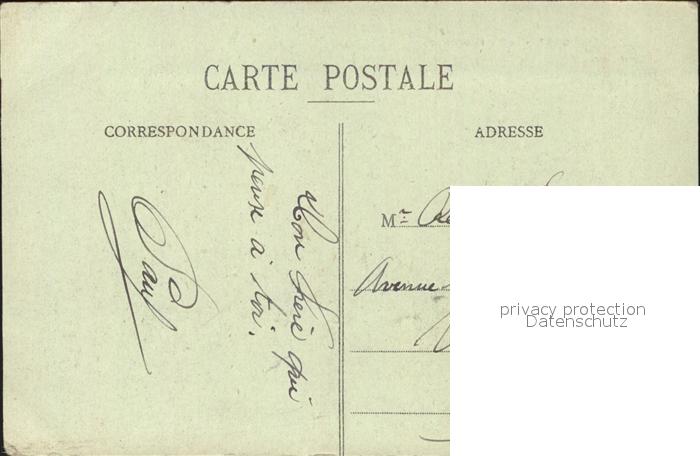 CARTE POSTALE
CORRESPONDANCE
ADRESSE
Ton frère qui
pense à toi.
Paul
Mr
Avenue
privacy protection
Datenschutz